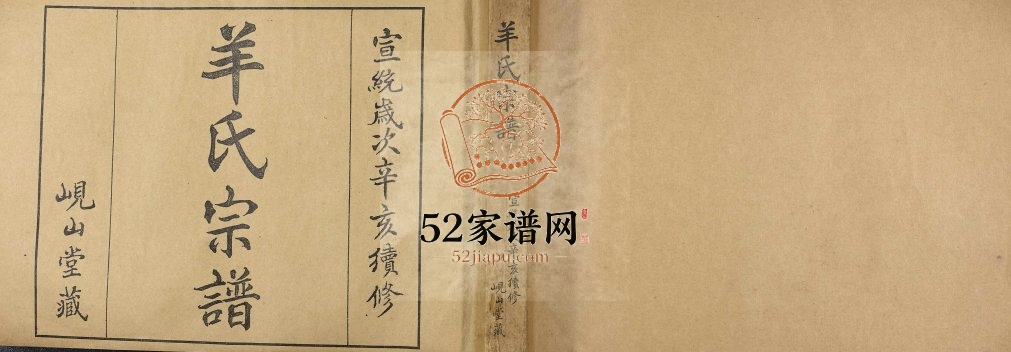 宣統歲次辛亥續修
羊氏宗譜
峴山堂藏
羊氏宗譜
宣
辛亥續修
峴山堂藏
52家谱网
52jiapu.com